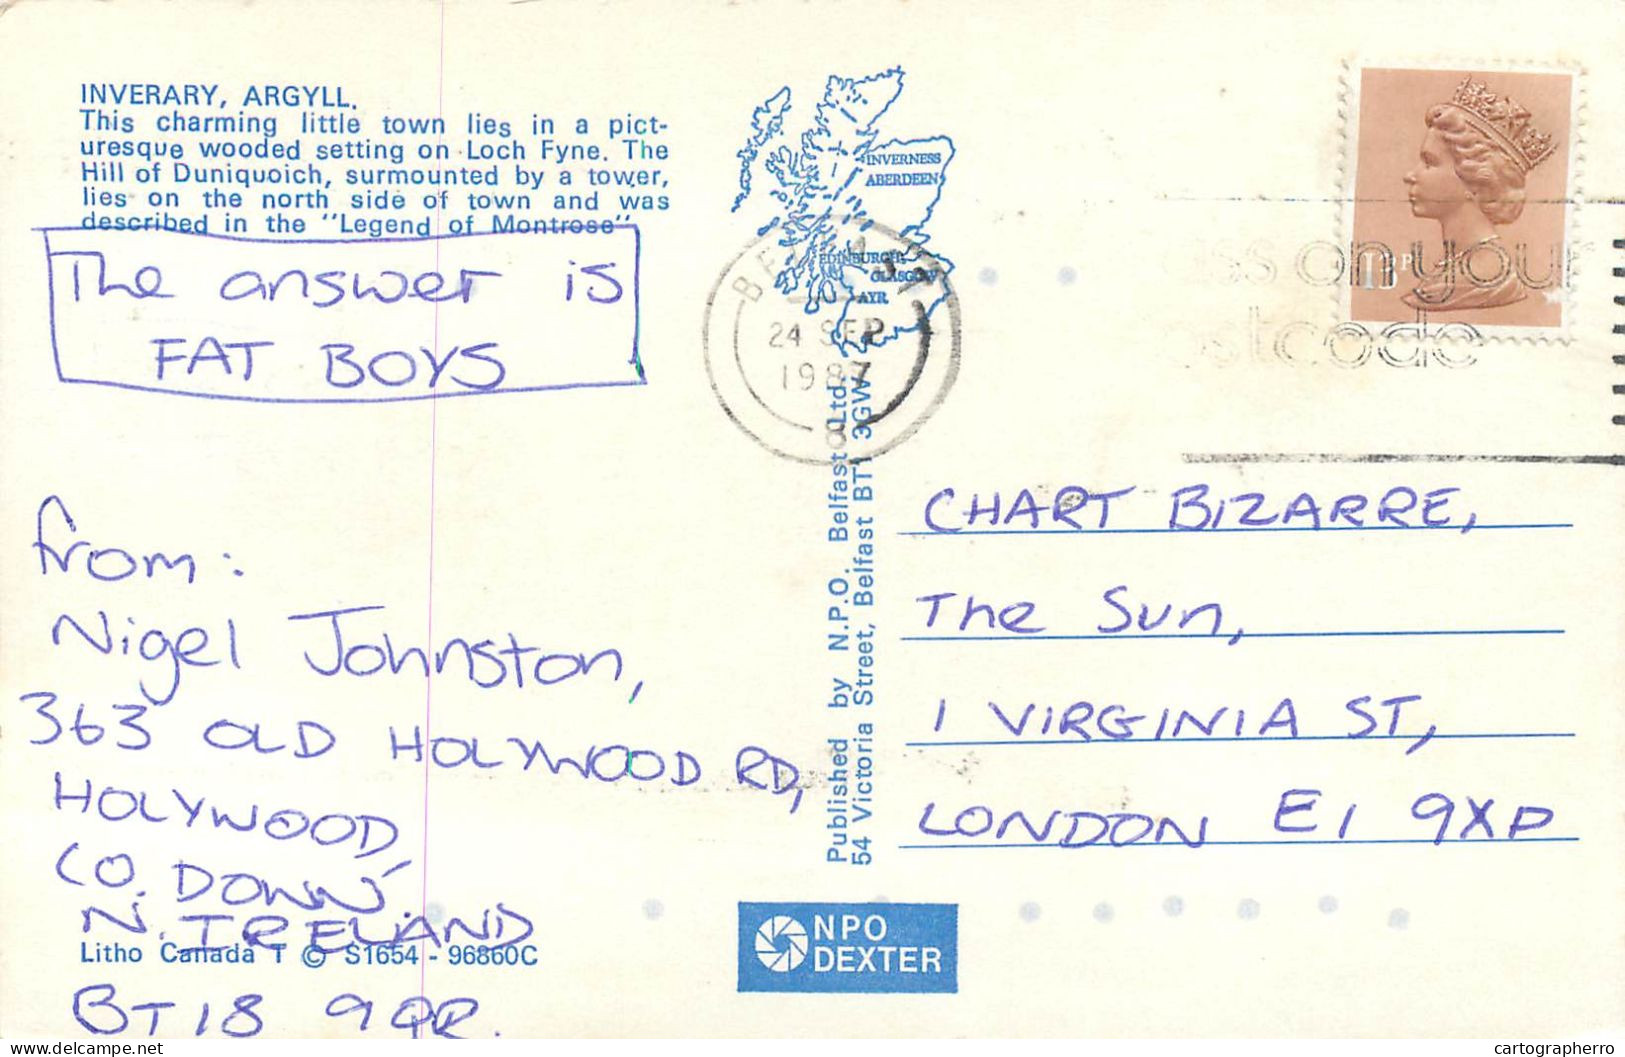 INVERARY, ARGYLL.
This charming little town lies in a pict-
uresque wooded setting on Loch Fyne. The
Hill of Duniquoich, surmounted by a tower,
lies on the north side of town and was
described in the "Legend of Montrose".
The answer is
FAT BOYS
from:
Nigel Johnston,
363 OLD HOLYWOOD RD,
HOLYWOOD,
CO. DOWN,
N. IRELAND
BT18 9QR.
Litho Canada T © S1654 - 96860C
INVERNESS
ABERDEEN
EDINBURGH
GLASGOW
AYR
BELFAST
24 SEP
1987
8
Published by N.P.O. Belfast Ltd.
54 Victoria Street, Belfast BT1 3GW
NPO
DEXTER
13P
on your
postcode
CHART BIZARRE,
The Sun,
1 VIRGINIA ST,
LONDON E1 9XP
delcampe.net
cartographerro